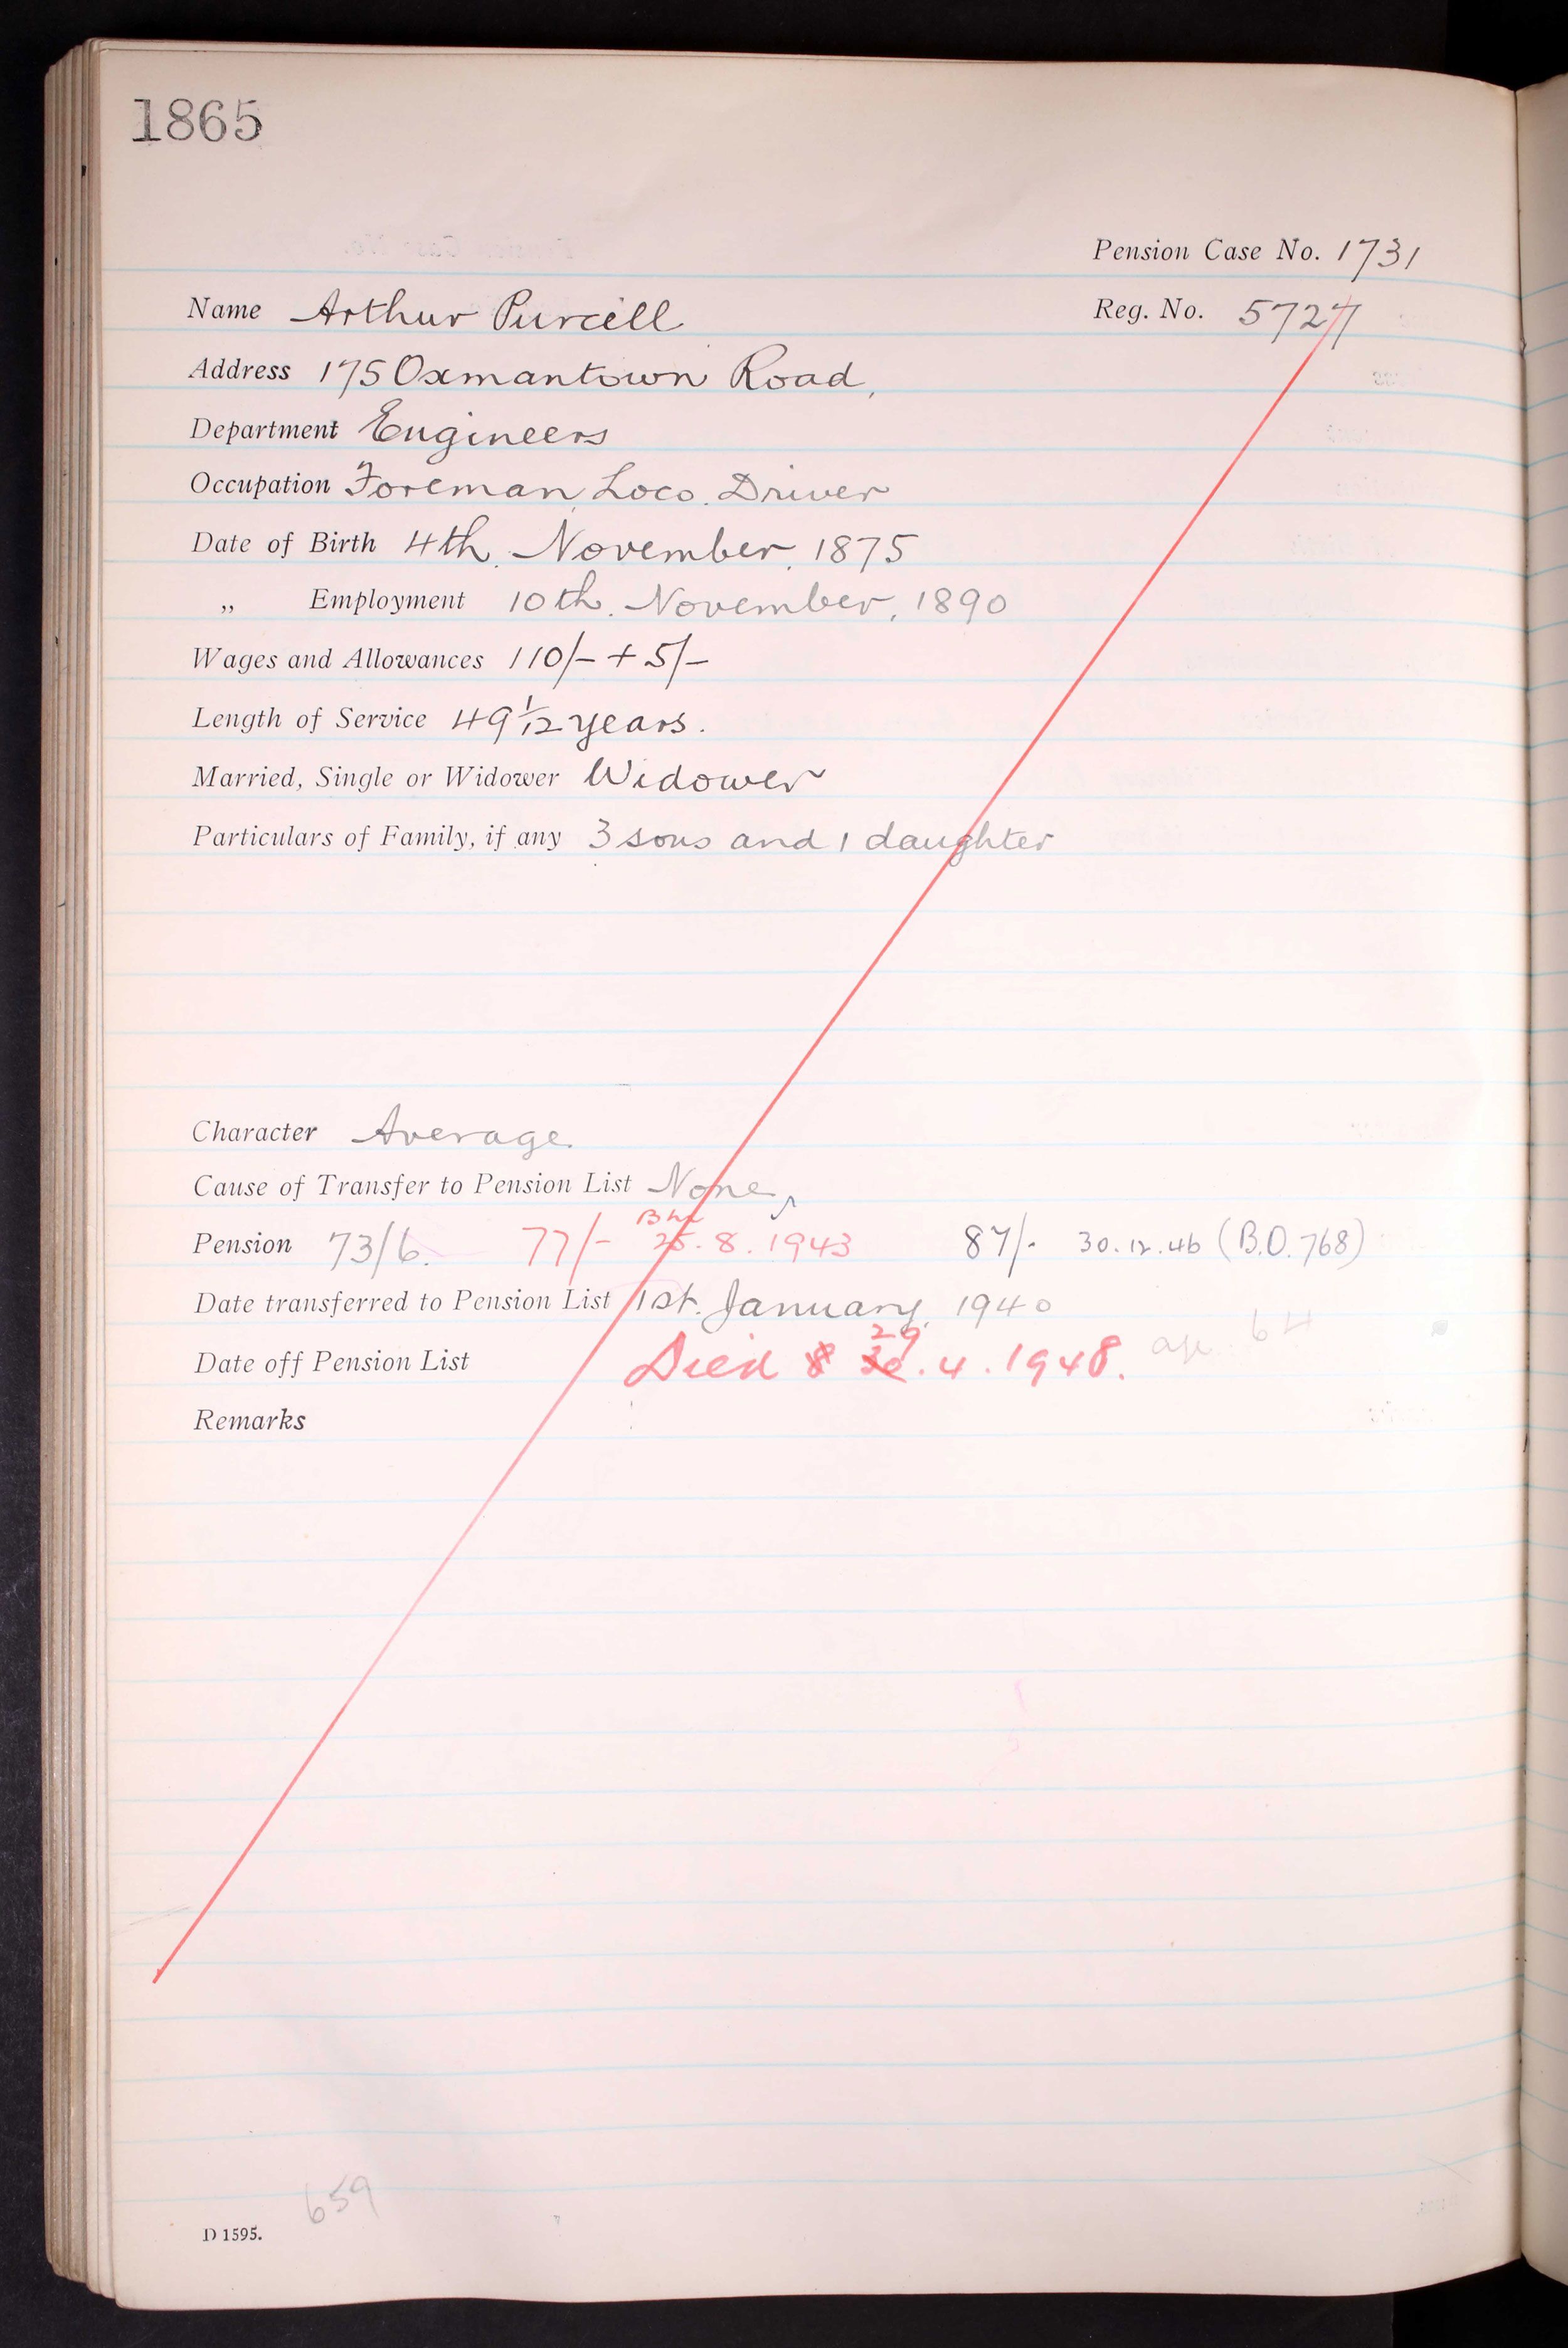 1865
Pension Case No. 1731
Name Arthur Purcell Reg. No. 5727
Address 175 Oxmantown Road,
Department Engineers
Occupation Foreman Loco. Driver
Date of Birth 4th. November, 1875
„ Employment 10th. November, 1890
Wages and Allowances 110/- + 5/-
Length of Service 49 1/12 years.
Married, Single or Widower Widower
Particulars of Family, if any 3 sons and 1 daughter
Character Average
Cause of Transfer to Pension List None
Pension 73/6. 77/- 25.8.1943 87/- 30.12.46 (B.O. 768)
Date transferred to Pension List 1st. January, 1940
age 64
29
Date off Pension List Died 8 30.4.1948.
Remarks
659
D 1595.